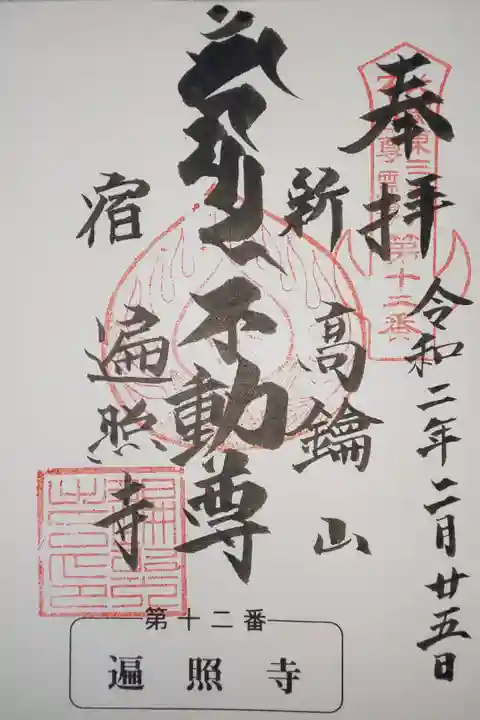 奉拝
令和二年二月廿五日
第十二番
新
高鑰山
不動尊
宿
遍照寺
第十二番
遍照寺